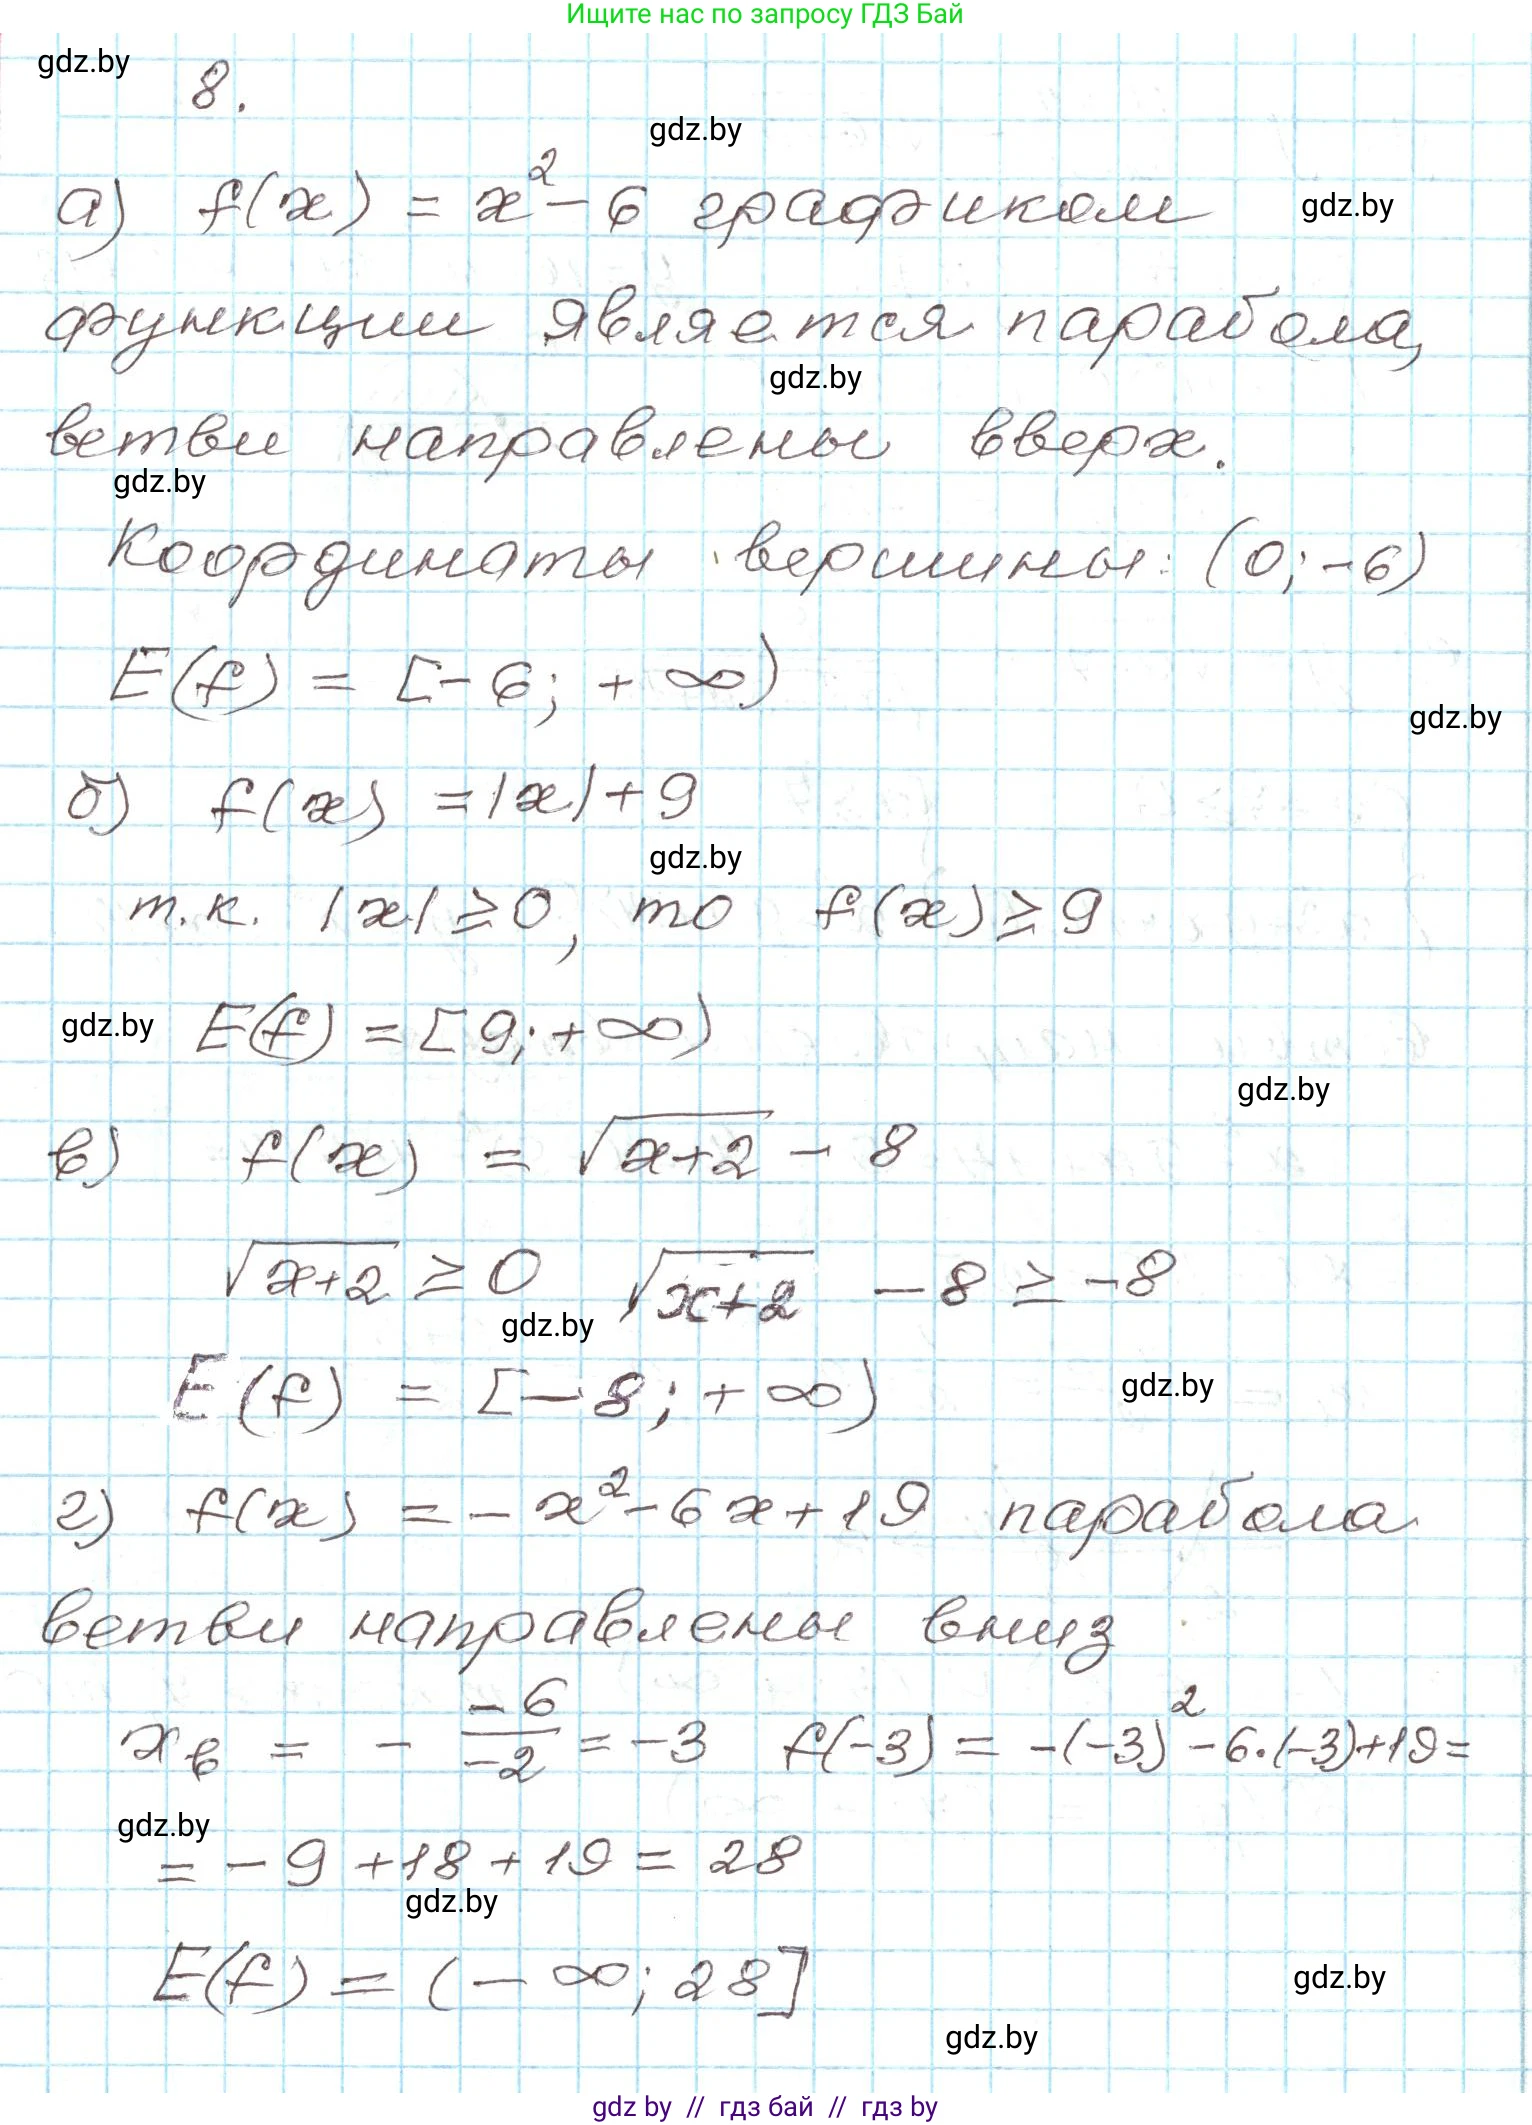 Ищите нас по запросу ГДЗ Бай
gdz.by
8.
gdz.by
а) f(x) = x² - 6 графиком
gdz.by
функции является парабола,
gdz.by
ветви направлены вверх.
gdz.by
Координаты вершины: (0; -6)
E(f) = [-6; +∞)
gdz.by
б) f(x) = |x| + 9
gdz.by
т.к. |x| ≥ 0, то f(x) ≥ 9
gdz.by E(f) = [9; +∞)
gdz.by
в) f(x) = √(x+2) - 8
√(x+2) ≥ 0 √(x+2) - 8 ≥ -8
gdz.by
E(f) = [-8; +∞)
gdz.by
г) f(x) = -x² - 6x + 19 парабола
ветви направлены вниз
xв = - -6/-2 = -3 f(-3) = -(-3)² - 6·(-3) + 19 =
gdz.by
= -9 + 18 + 19 = 28
gdz.by
E(f) = (-∞; 28]
gdz.by
gdz.by
gdz by // гдз бай // gdz by